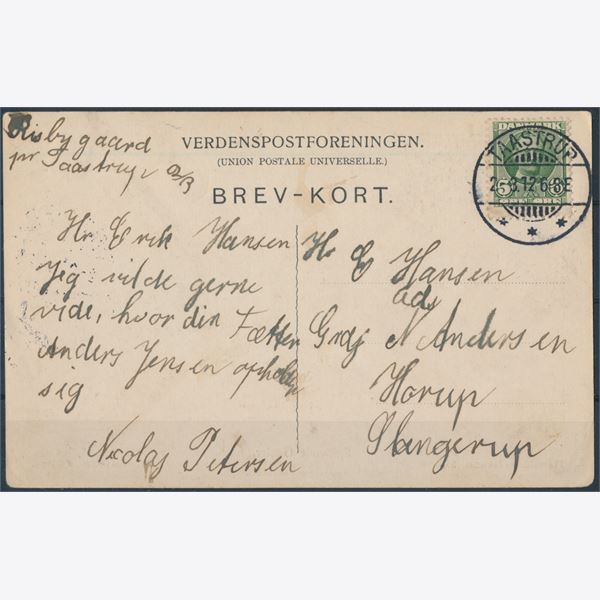 Risbygaard
pr Taastrup 2/3
VERDENSPOSTFORENINGEN.
(UNION POSTALE UNIVERSELLE.)
BREV-KORT.
DANMARK
5 5
TAASTRUP
2.3.12 6-8E
Hr Erik Hansen
Jeg vilde gerne
vide, hvor din Fætter
Anders Jensen opholder
sig
Nicolaj Petersen
Hr E Hansen
ad
Grdj N Andersen
Hørup
Slangerup